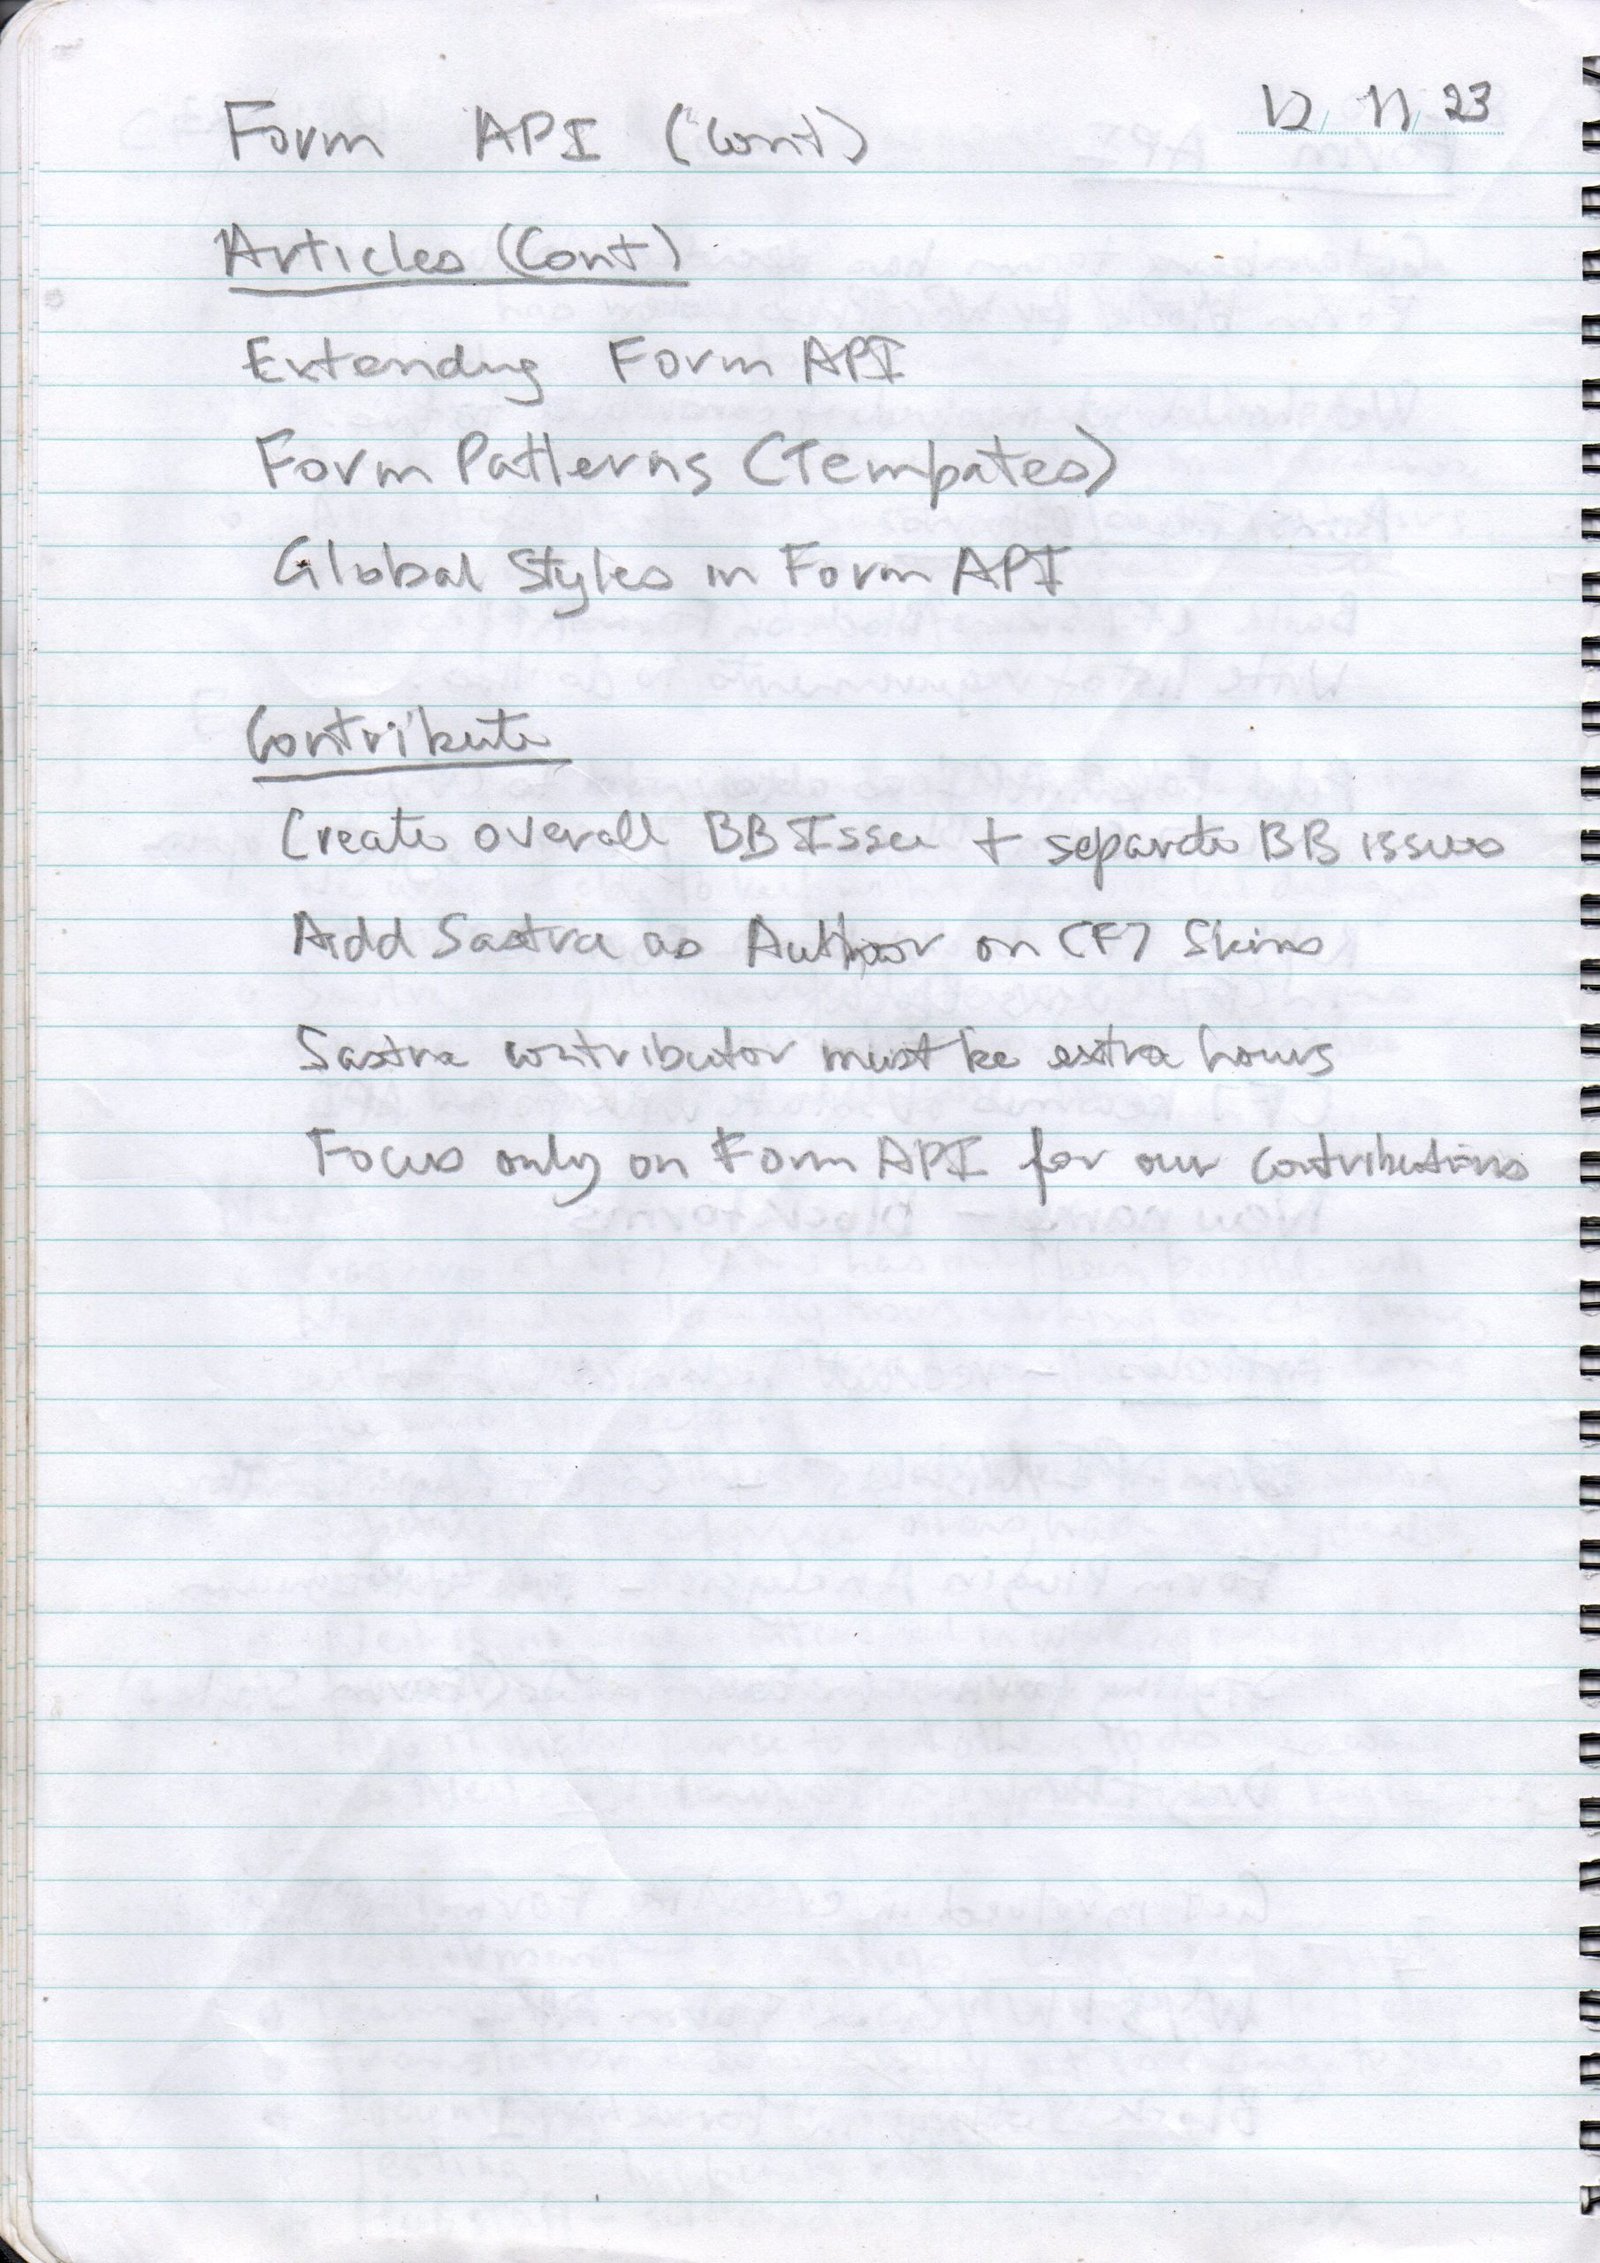 Form API (Cont)
12/11/23
Articles (Cont)
Extending Form API
Form Patterns (Tempates)
Global Styles in Form API
Contribute
Create overall BB Issue + separate BB issues
Add Sastra as Author on CF7 Skins
Sastra contributor must be extra hours
Focus only on Form API for our contributions